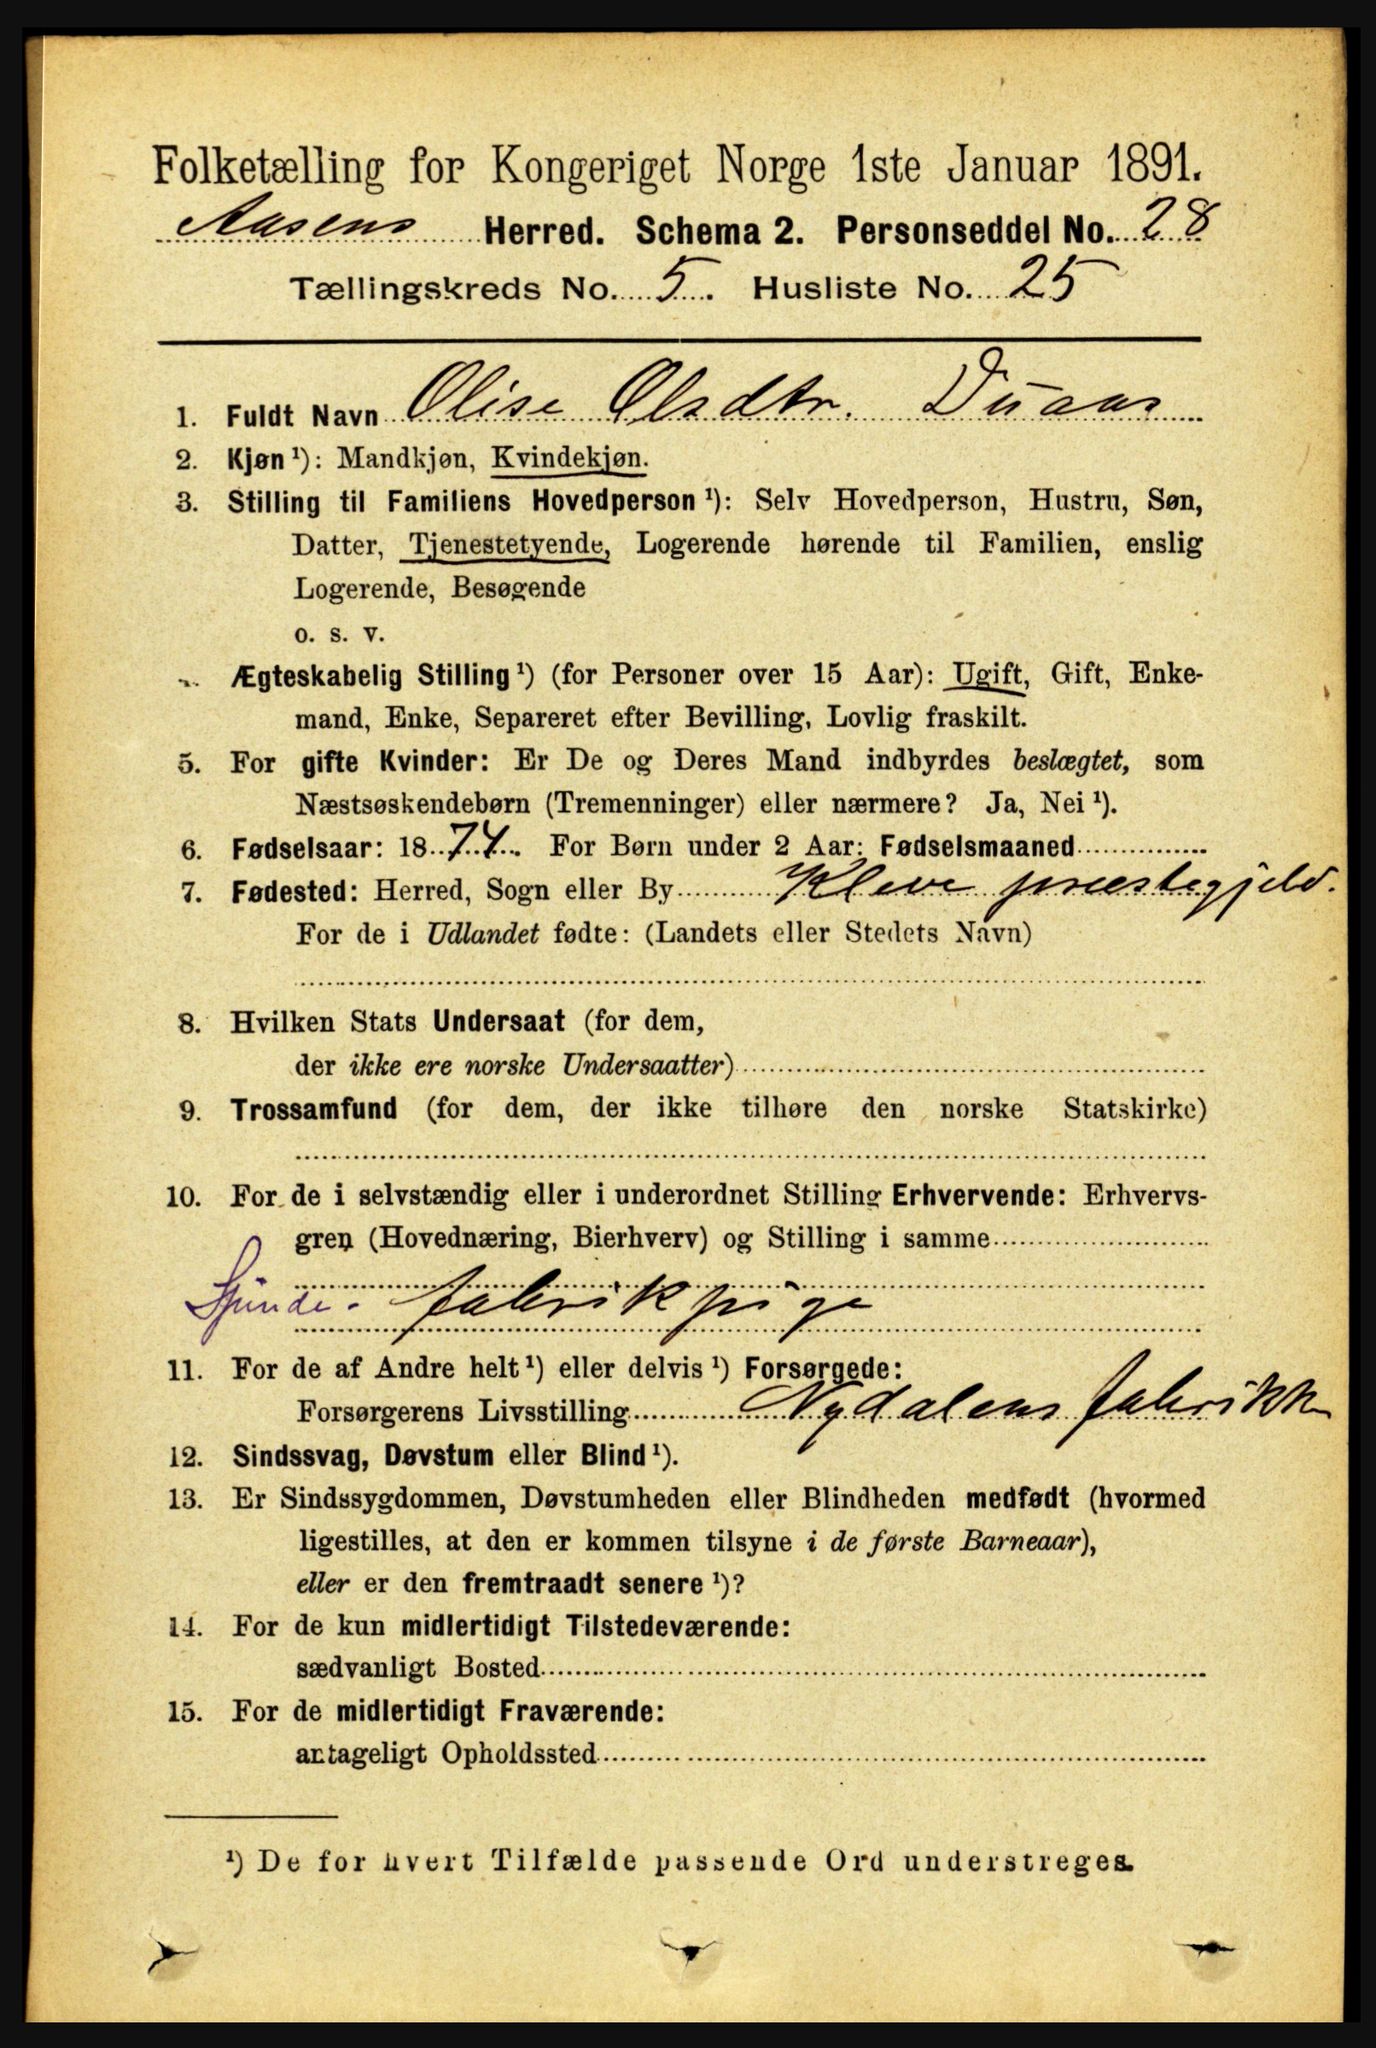 Folketælling for Kongeriget Norge 1ste Januar 1891.
Aasens Herred. Schema 2. Personseddel No. 28
Tællingskreds No. 5. Husliste No. 25
1. Fuldt Navn Olise Olsdtr. Duaas
2. Kjøn ¹): Mandkjøn, Kvindekjøn.
3. Stilling til Familiens Hovedperson ¹): Selv Hovedperson, Hustru, Søn,
Datter, Tjenestetyende, Logerende hørende til Familien, enslig
Logerende, Besøgende
o. s. v.
Ægteskabelig Stilling ¹) (for Personer over 15 Aar): Ugift, Gift, Enke-
mand, Enke, Separeret efter Bevilling, Lovlig fraskilt.
5. For gifte Kvinder: Er De og Deres Mand indbyrdes beslægtet, som
Næstsøskendebørn (Tremenninger) eller nærmere? Ja, Nei ¹).
6. Fødselsaar: 1874. For Børn under 2 Aar: Fødselsmaaned
7. Fødested: Herred, Sogn eller By Kleve præstegjeld.
For de i Udlandet fødte: (Landets eller Stedets Navn)
8. Hvilken Stats Undersaat (for dem,
der ikke ere norske Undersaatter)
9. Trossamfund (for dem, der ikke tilhøre den norske Statskirke)
10. For de i selvstændig eller i underordnet Stilling Erhvervende: Erhvervs-
gren (Hovednæring, Bierhverv) og Stilling i samme
Spinde. fabrikpige
11. For de af Andre helt ¹) eller delvis ¹) Forsørgede:
Forsørgerens Livsstilling Nydalens fabrikk
12. Sindssvag, Døvstum eller Blind ¹).
13. Er Sindssygdommen, Døvstumheden eller Blindheden medfødt (hvormed
ligestilles, at den er kommen tilsyne i de første Barneaar),
eller er den fremtraadt senere ¹)?
14. For de kun midlertidigt Tilstedeværende:
sædvanligt Bosted
15. For de midlertidigt Fraværende:
antageligt Opholdssted
¹) De for hvert Tilfælde passende Ord understreges.